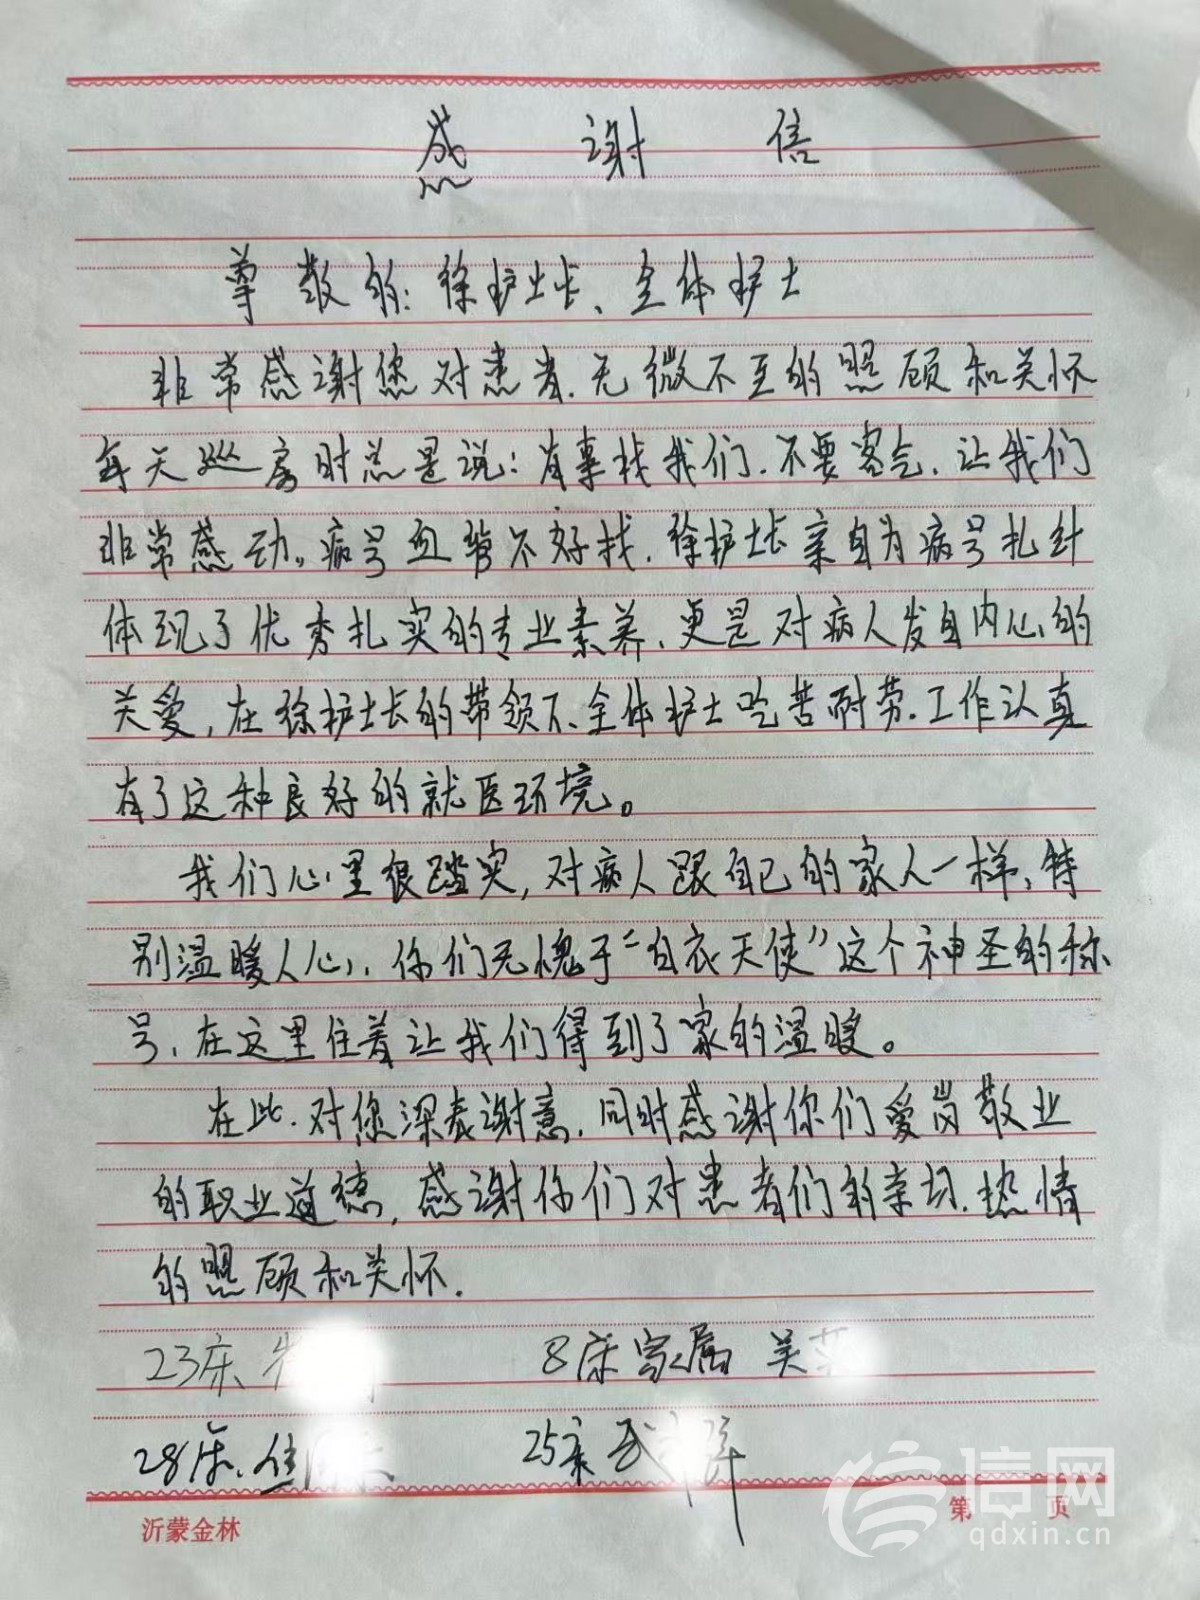 感谢信
尊敬的：徐护士长、全体护士
非常感谢您对患者.无微不至的照顾和关怀
每天巡房时总是说：有事找我们.不要客气.让我们
非常感动。病号血管不好找.徐护士长亲自为病号扎针
体现了优秀扎实的专业素养.更是对病人发自内心的
关爱,在徐护士长的带领下、全体护士吃苦耐劳.工作认真
有了这种良好的就医环境。
我们心里很踏实,对病人跟自己的家人一样,特
别温暖人心.你们无愧于“白衣天使”这个神圣的称
号,在这里住着让我们得到了家的温暖。
在此.对您深表谢意.同时感谢你们爱岗敬业
的职业道德,感谢你们对患者们的亲切.热情
的照顾和关怀.
23床 8床家属 关
28床. 25床
沂蒙金林 第 页
信网
qdxin.cn